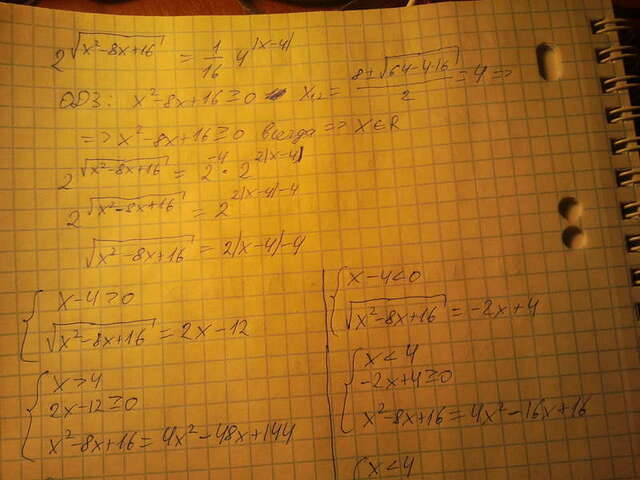 2^√(x²-8x+16) = 1/16 4^|x-4|
ОДЗ: x²-8x+16≥0 x₁,₂ = (8±√(64-4·16))/2 = 4 ⇒
⇒ x²-8x+16≥0 всегда ⇒ x∈R
2^√(x²-8x+16) = 2^-4 · 2^2|x-4|
2^√(x²-8x+16) = 2^2|x-4|-4
√(x²-8x+16) = 2|x-4|-4
{ x-4≥0
√(x²-8x+16) = 2x-12
{ x≥4
2x-12≥0
x²-8x+16=4x²-48x+144
{ x-4<0
√(x²-8x+16) = -2x+4
{ x<4
-2x+4≥0
x²-8x+16=4x²-16x+16
{ x<4